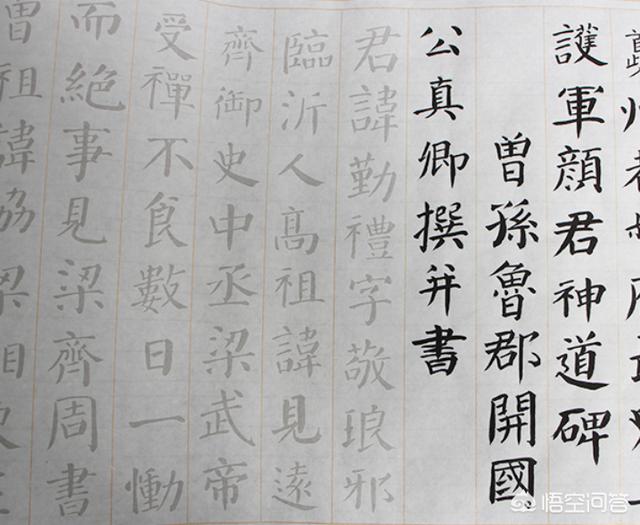 護軍顔君神道碑
曾孫魯郡開國
公真卿撰并書
君諱勤禮字敬琅邪
臨沂人髙祖諱見遠
齊御史中丞梁武帝
受禪不食數日一慟
而絶事見梁齊周書
曾祖諱協梁
悟空问答